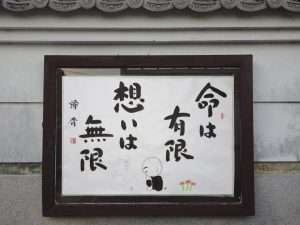 命は
有限
想いは
無限